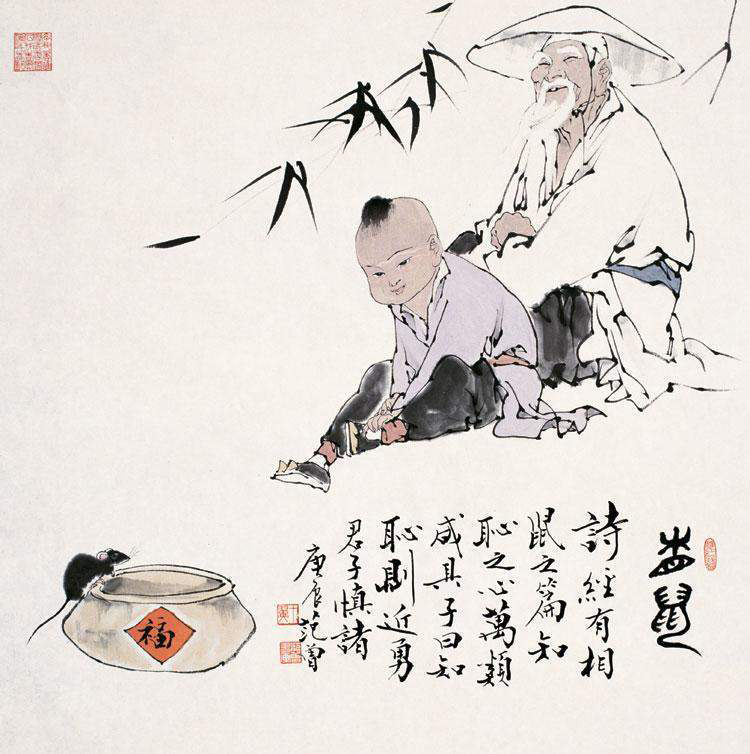 相鼠
詩經有相
鼠之篇知
恥之心萬類
咸具子曰知
恥則近勇
君子慎諸
庚辰范曾
福